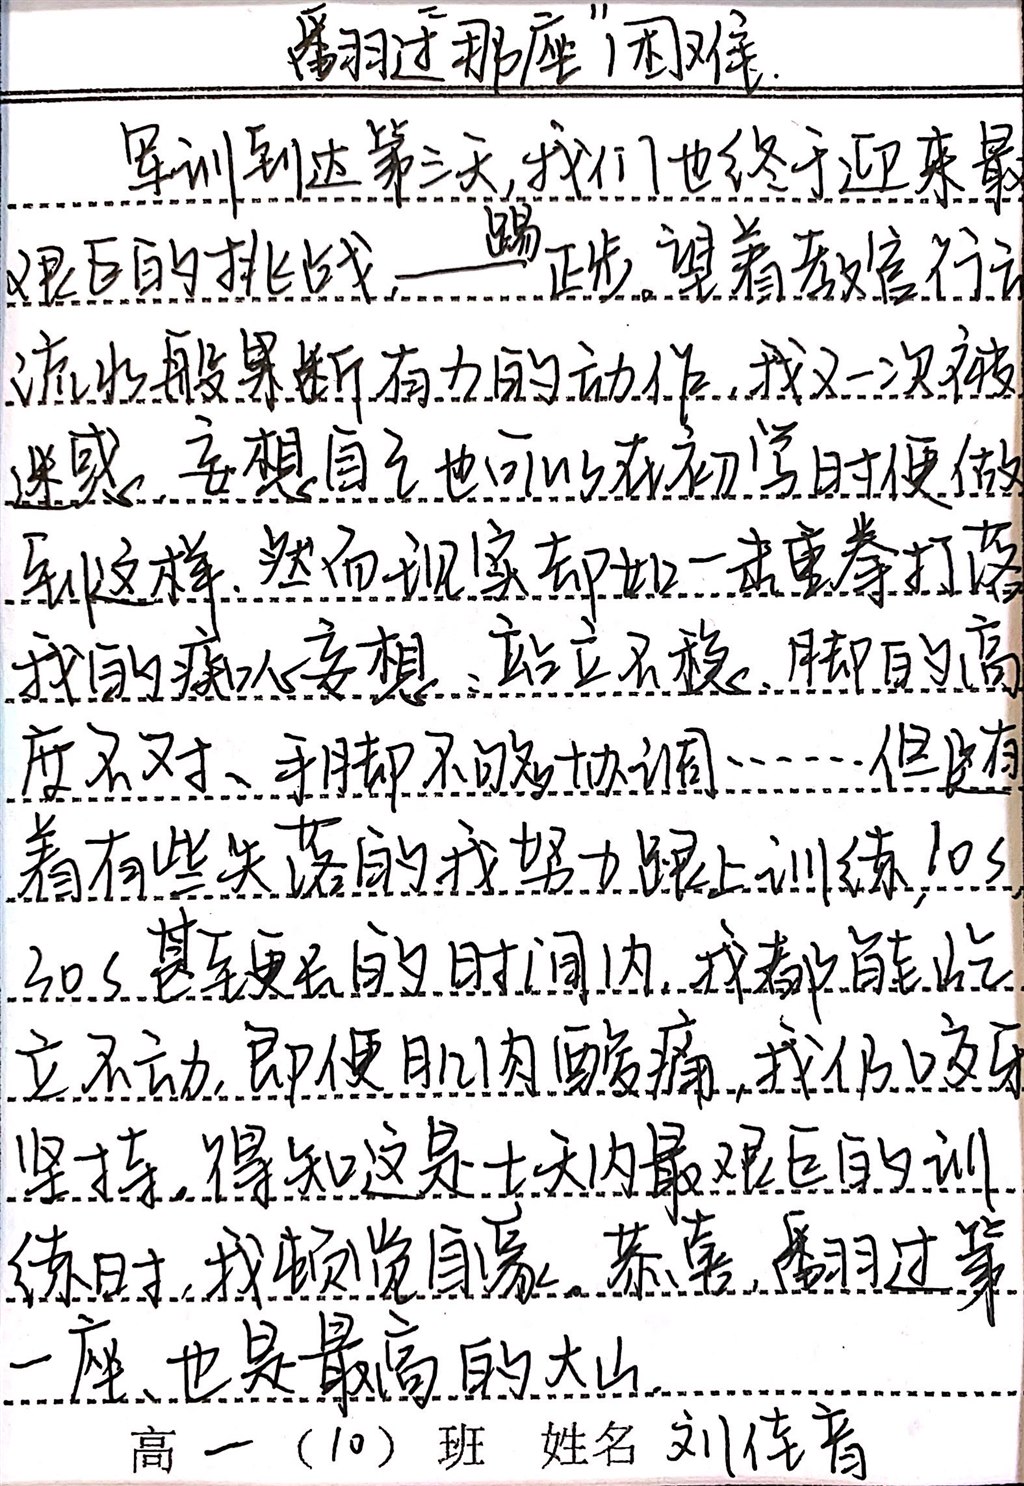 翻过那座"困难
军训到达第三天,我们也终于迎来最
艰巨的挑战,——踢正步。望着教官行云
流水般果断有力的动作,我又一次被
迷惑,妄想自己也可以在初学时便做
到这样。然而现实却如一击重拳打落
我的痴心妄想、站立不稳、脚的高
度不对、手脚不够协调……但没有
着有些失落的我努力跟上训练,10s,
30s甚至更长的时间内,我都能屹
立不动,即便肌肉酸痛,我仍咬牙
坚持。得知这是七天内最艰巨的训
练时,我顿觉自豪。恭喜,翻过第
一座、也是最高的大山。
高一(10)班 姓名 刘佳音